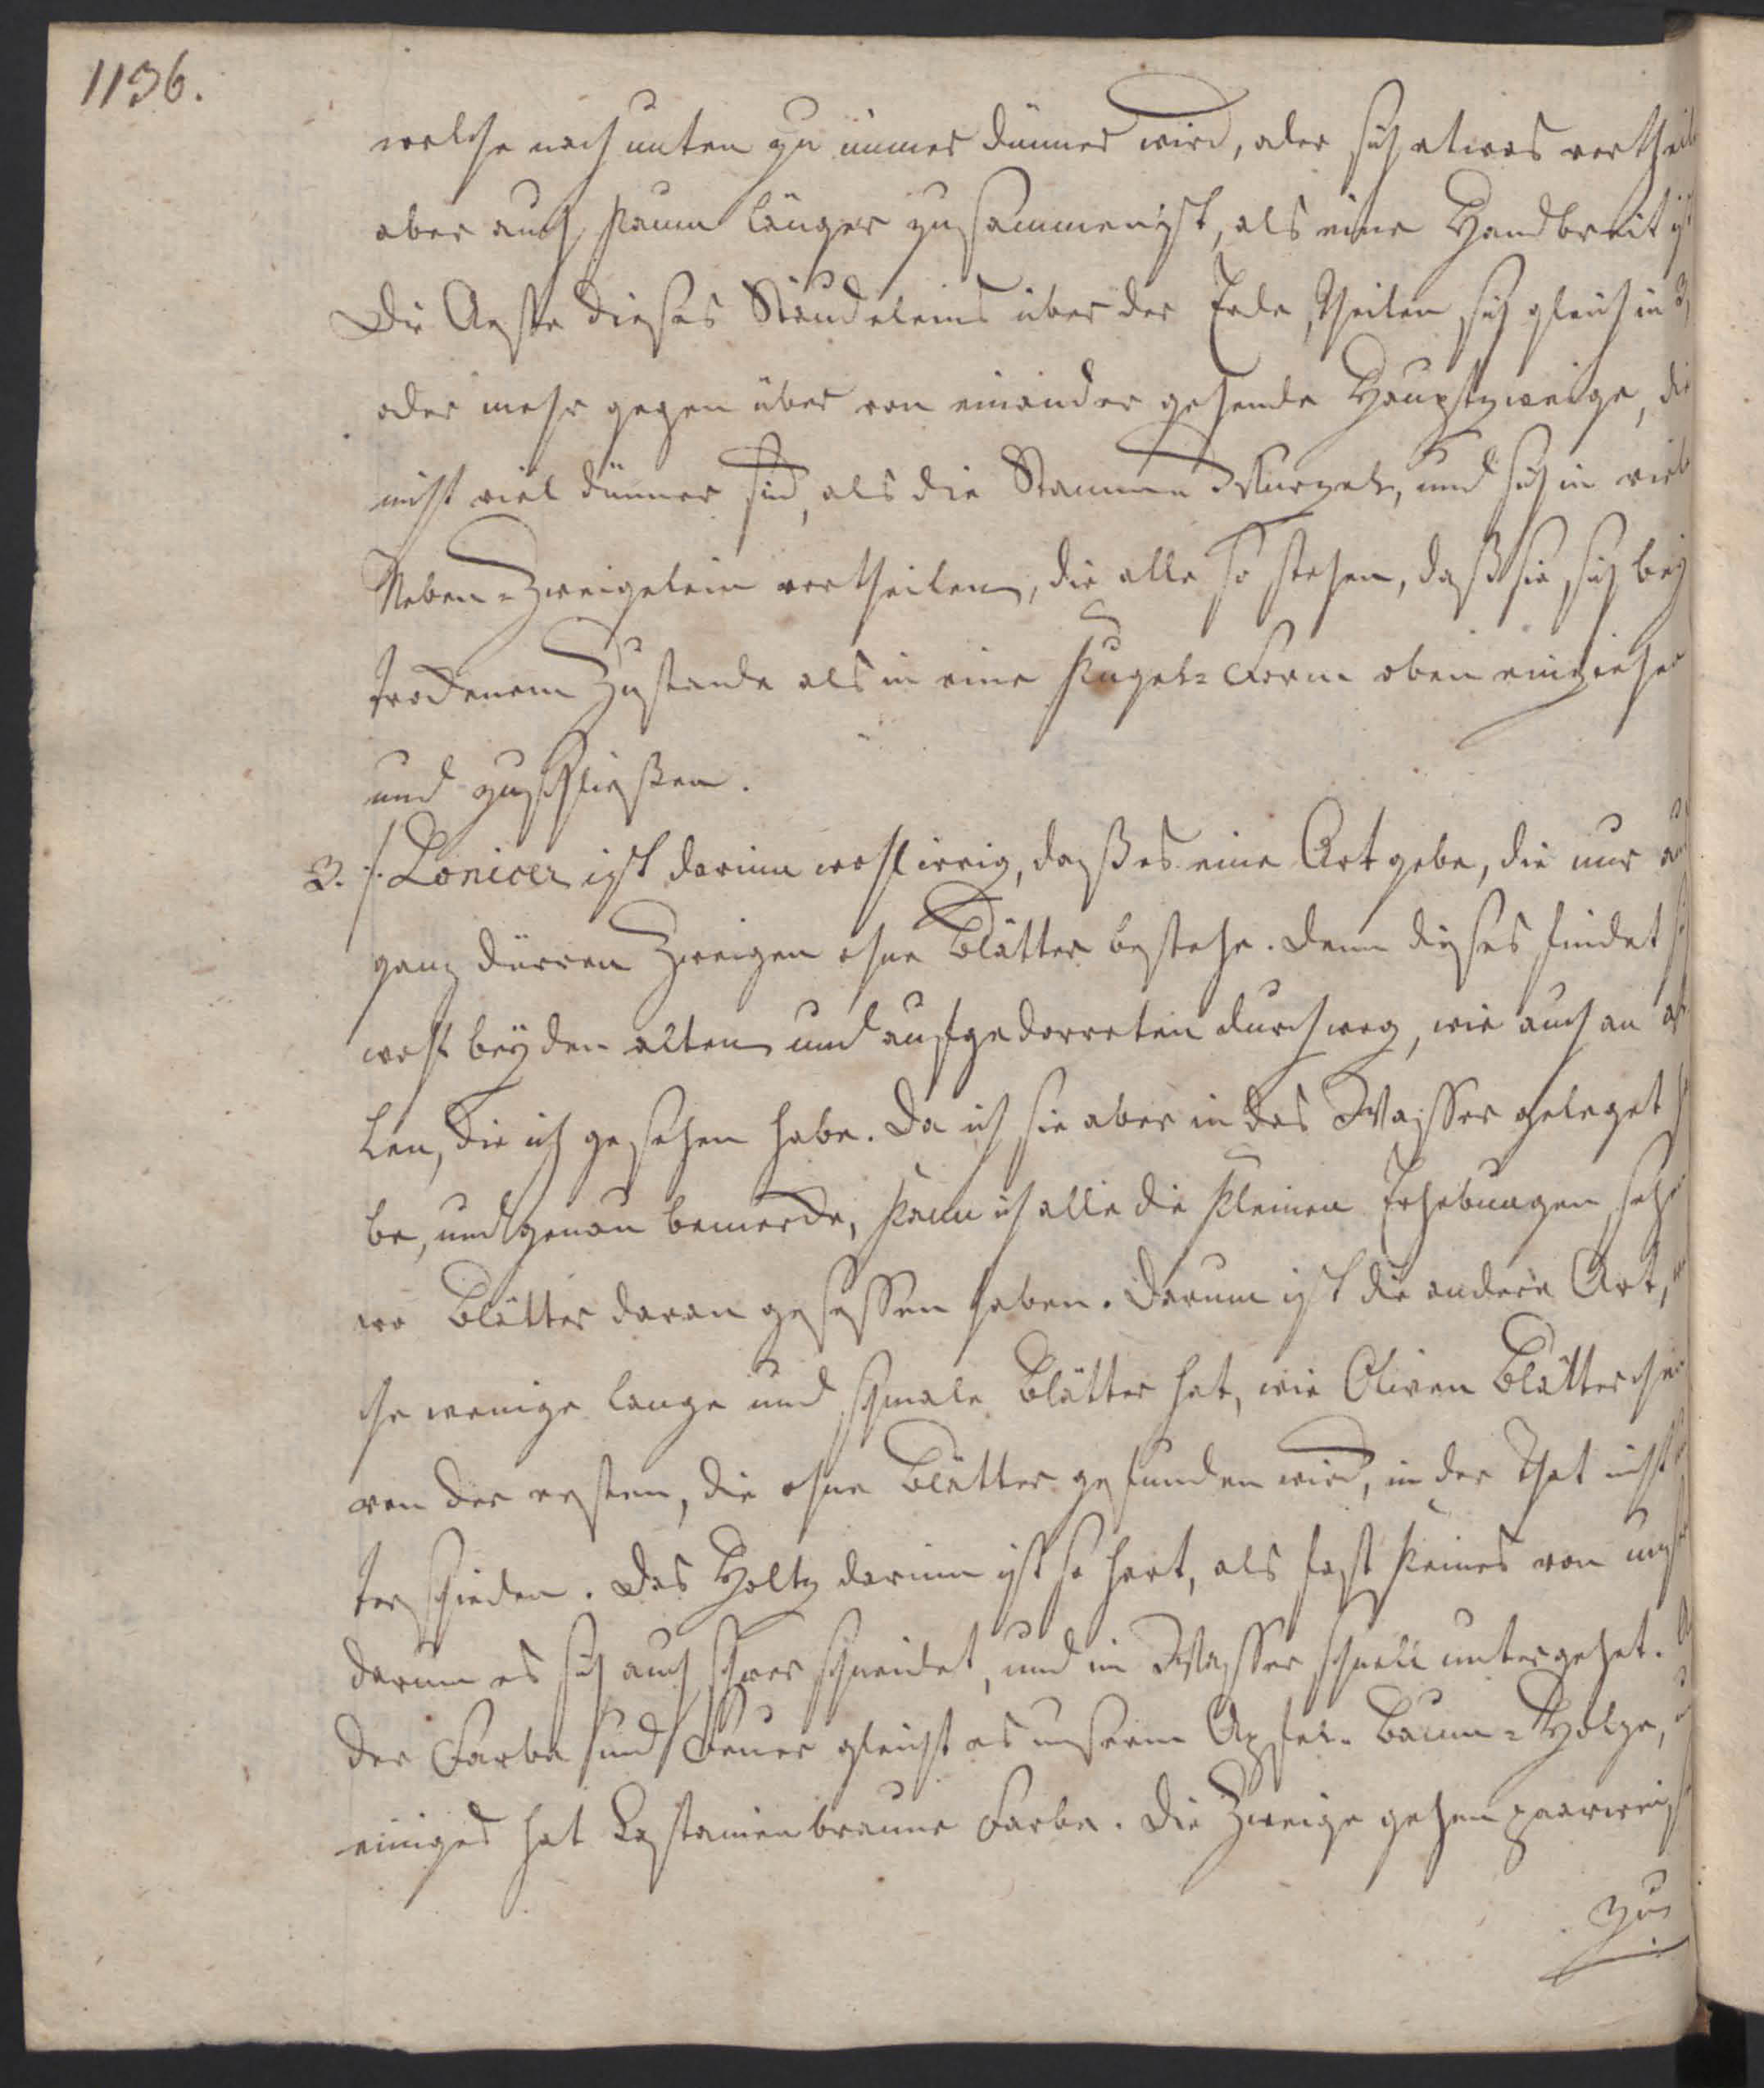 1136.
welche nach unten zu immer dünner wird, oder sich etwas vertheilt
aber auch kaum länger zusammen ist, als eine Hand breit ist
Die Aeste dieses Stäudeleins über der Erde, theilen sich gleich in 3,
oder mehr gegen über von einander gehende Hauptzweige, die
nicht viel dünner sind, als die Stamm Wurzel, und sich in viele
Neben-Zweigelein vertheilen, die alle so stehen, daß sie sich bey
trockenem Zustande als in eine Kugel-Form oben einziehen
und zuschließen.
3. /. Lonicer ist darinn wohl irrig, daß es eine Art gebe, die nur aus
ganz dürren Zweigen ohne Blätter bestehe. Denn dieses findet
wohl bey den alten und ausgedorreten durchweg, wie auch an
len, die ich gesehen habe. Da ich sie aber in das Wasser geleget
be, und genau bemercke, kann ich alle die kleinen Erhebungen sehen
wo Blätter daran gesessen haben. Darum ist die andere Art,
che wenige lange und schmale Blätter hat, wie Oliven Blätterchen
von der ersten, die ohne Blätter gefunden wird, in der That nicht
terschieden. Das Holtz darinn ist so hart, als fast keines von
darum es sich auch schwer schneidet, und im Wasser schnell untergehet.
der Farbe und Feuer gleicht es unserm Apfel-Baum-Holze,
einiges hat Castanienbraune Farbe. Die Zweige gehen paarweise
zu